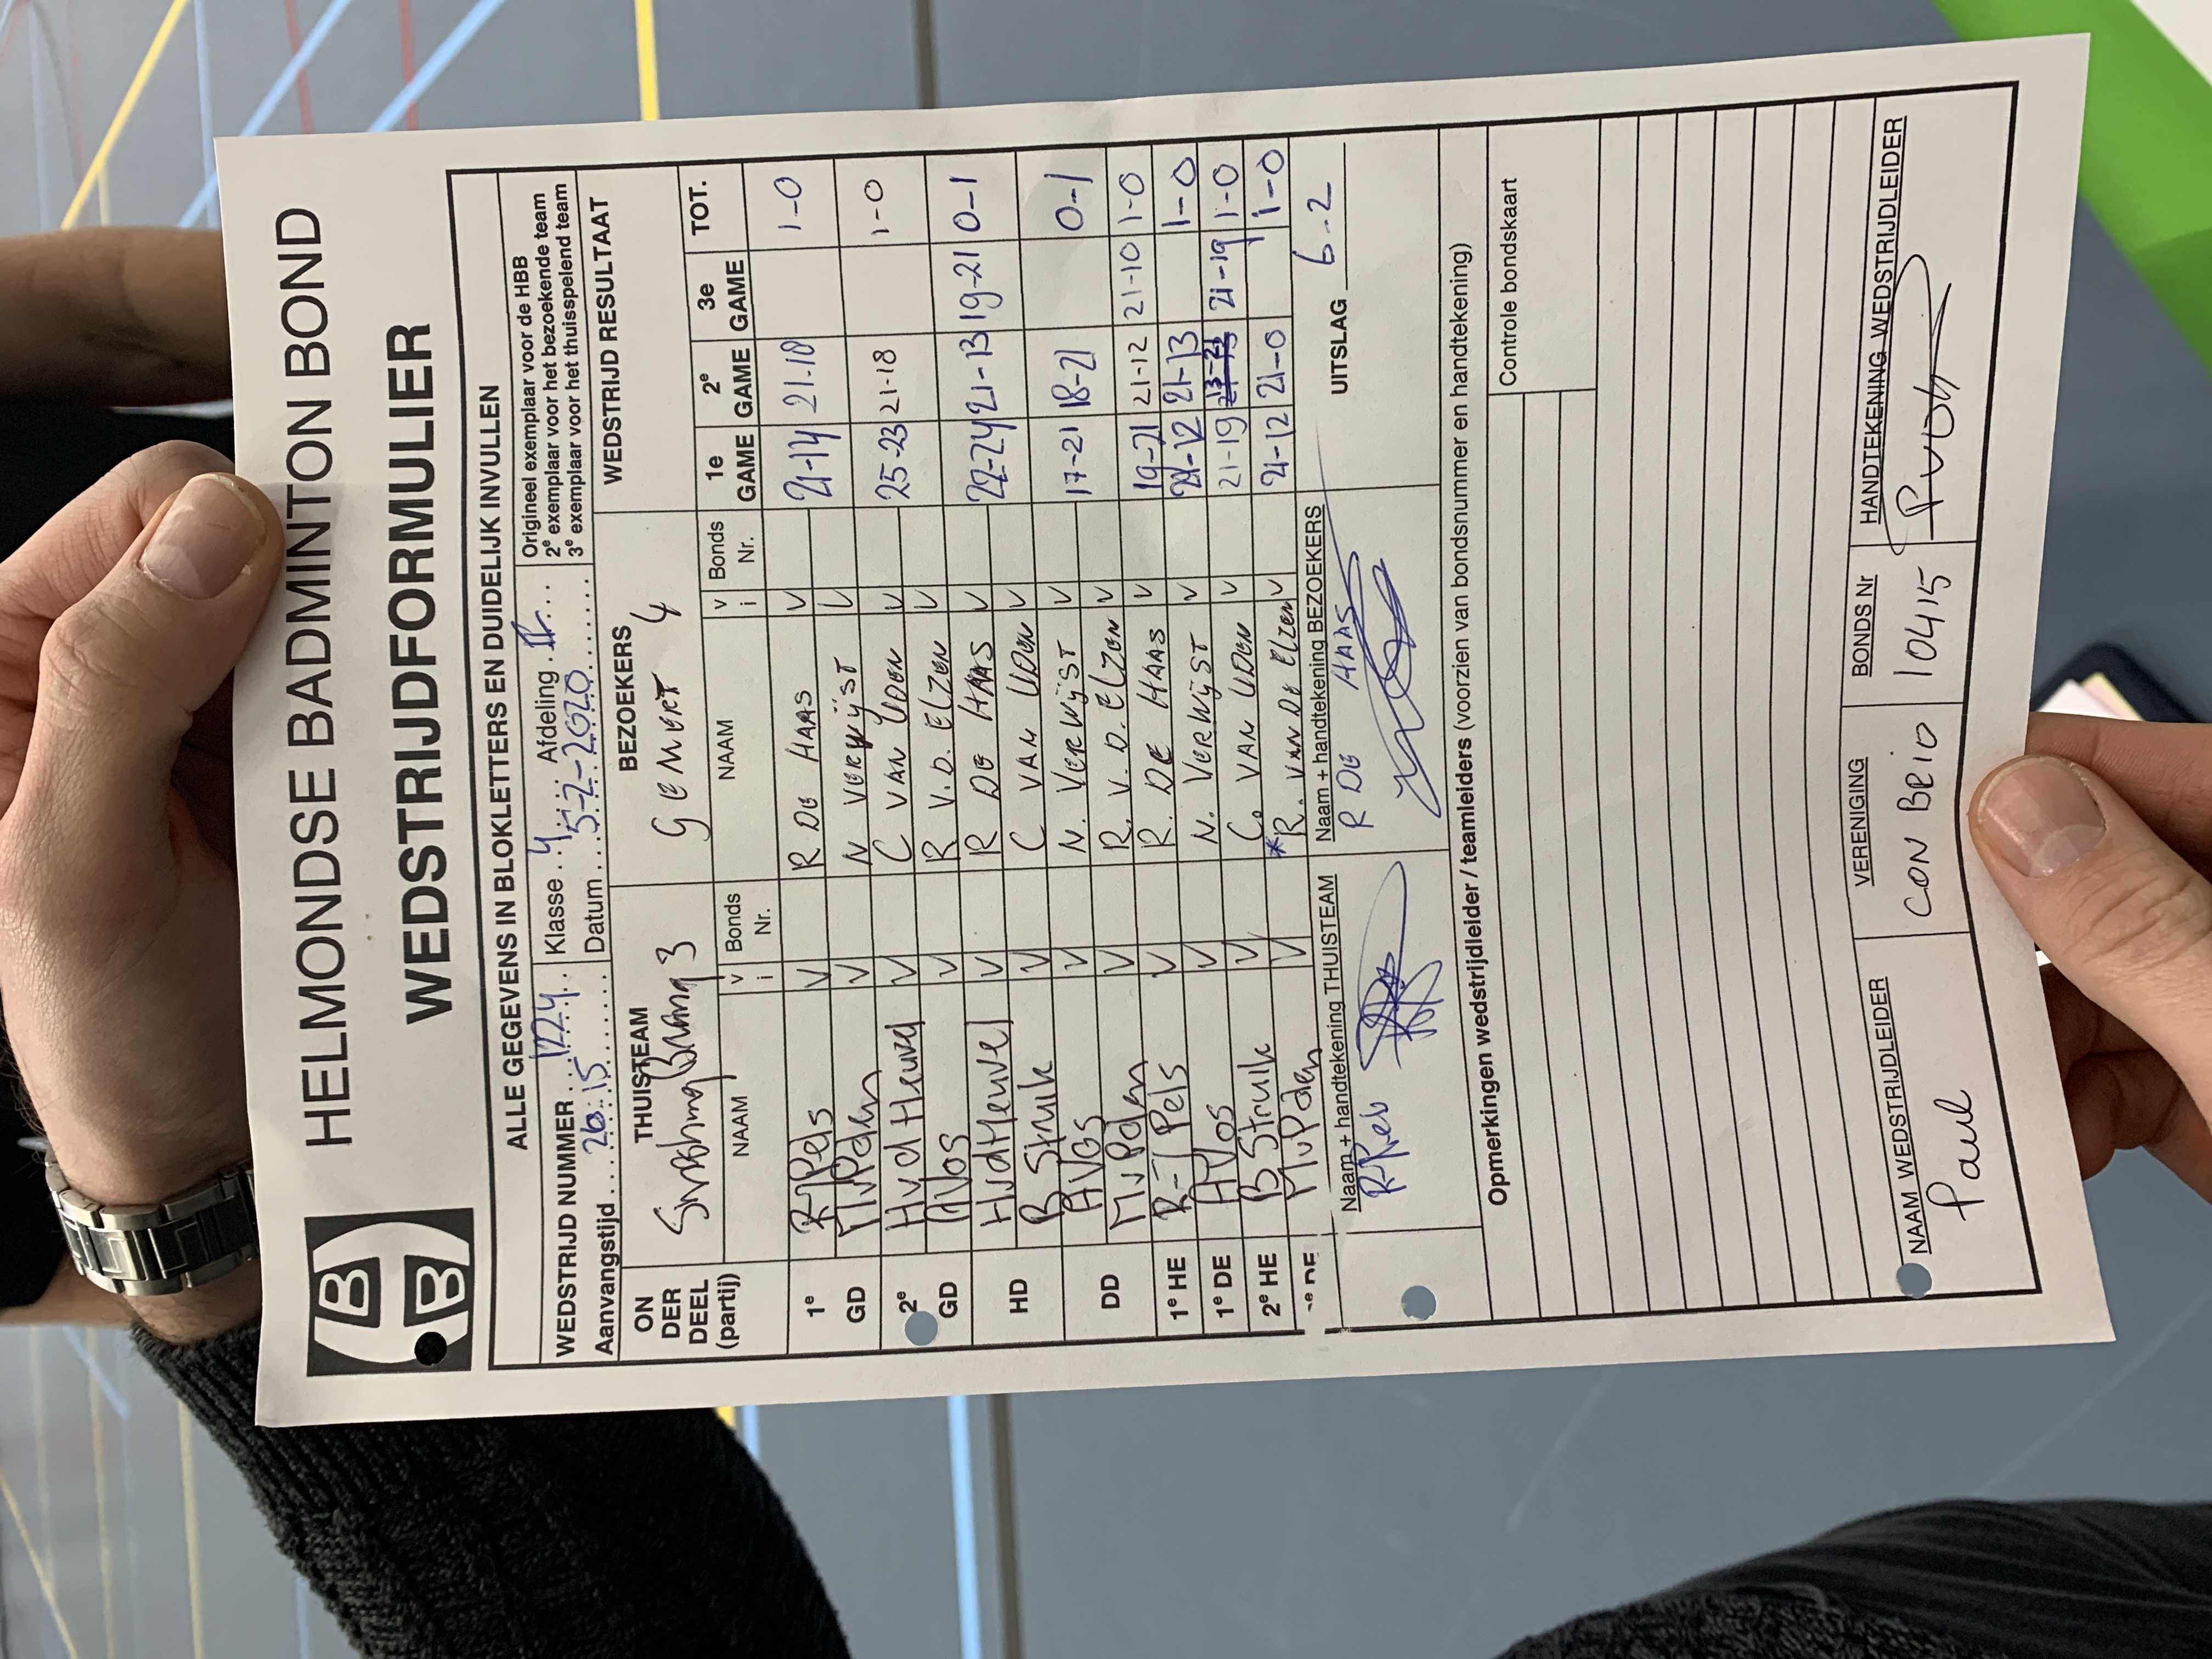 HELMONDSE BADMINTON BOND
WEDSTRIJDFORMULIER
ALLE GEGEVENS IN BLOKLETTERS EN DUIDELIJK INVULLEN
WEDSTRIJD NUMMER ... 1224 ... Klasse .. 4 .... Afdeling ....
Aanvangstijd ... 20.15 ....... Datum .... 5-2-2020 .......
Origineel exemplaar voor de HBB
2e exemplaar voor het bezoekende team
3e exemplaar voor het thuisspelend team
ON DER DEEL (partij) THUISTEAM BEZOEKERS Gemert 4 WEDSTRIJD RESULTAAT
3
NAAM v i Bonds Nr. NAAM v i Bonds Nr. 1e GAME 2e GAME 3e GAME TOT.
1e GD R Pels V R De Haas V 21-14 21-18 1-0
MvPelen V N Verwijst V
2e GD HvdHeuvel V C Van Uden V 25-23 21-18 1-0
AVos V R V.D. Elzen V
HD HvdHeuvel V R De Haas V 22-24 21-13 19-21 0-1
B Struik V C Van Uden V
DD AVos V N. Verwijst V 17-21 18-21 0-1
V R. V.D. Elzen V
1e HE R Pels V R. De Haas V 19-21 21-12 21-10 1-0
1e DE AVos V N. Verwijst V 21-12 21-13 1-0
2e HE B Struik V C. Van Uden V 21-19 21-19 1-0
V *R. Van De Elzen V 21-12 21-0 1-0
Naam + handtekening THUISTEAM Naam + handtekening BEZOEKERS UITSLAG 6-2
R Pels R De Haas
Opmerkingen wedstrijdleider / teamleiders (voorzien van bondsnummer en handtekening)
Controle bondskaart
NAAM WEDSTRIJDLEIDER VERENIGING BONDS Nr HANDTEKENING WEDSTRIJDLEIDER
Paul Con Brio 10415